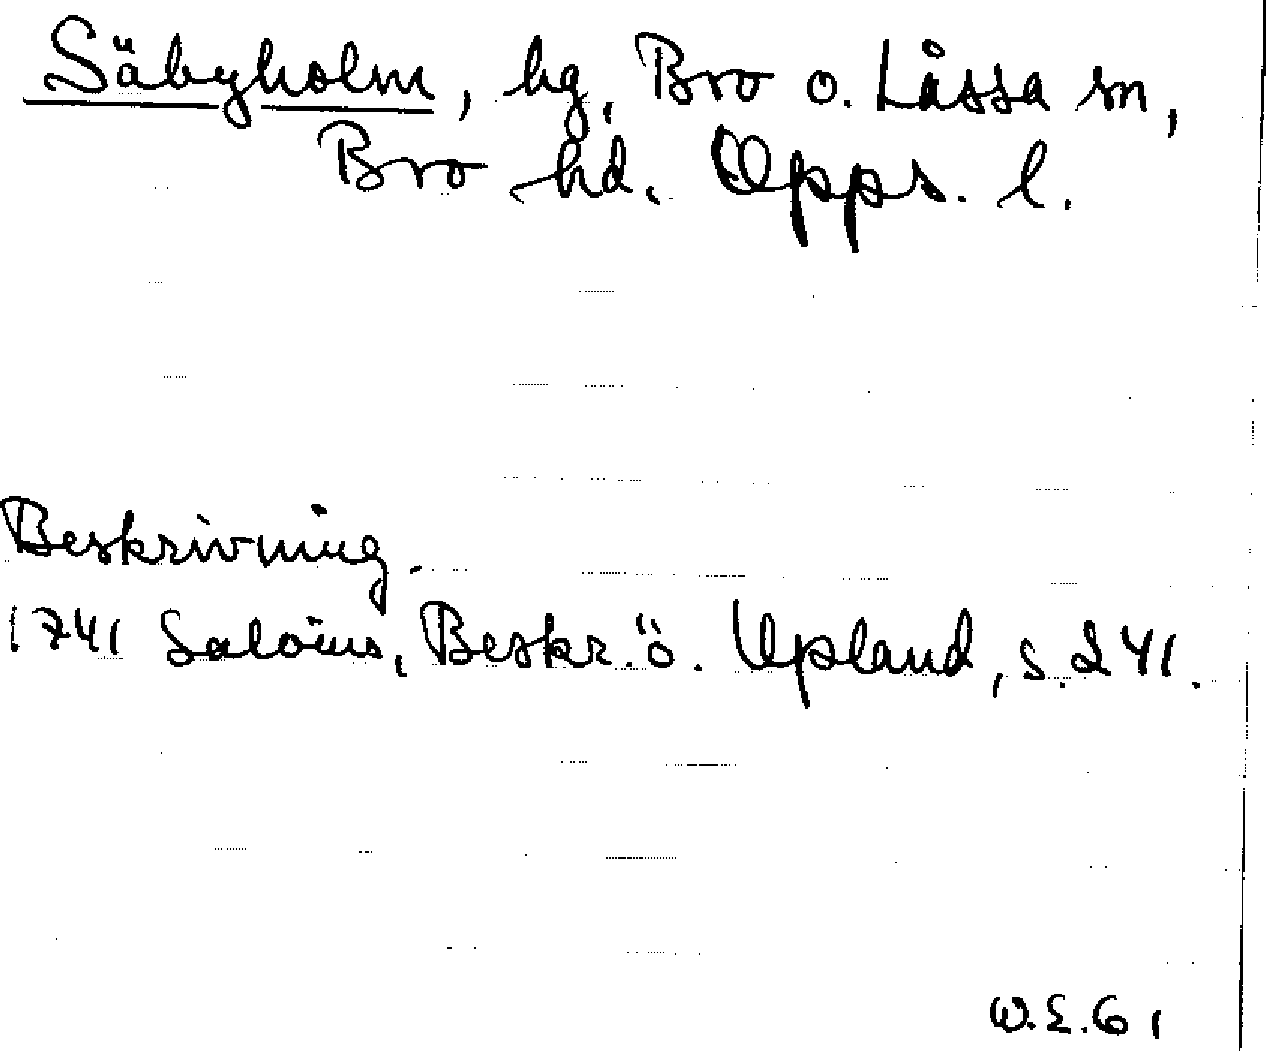 Säbyholm, hg, Bro o. Låssa sn,
Bro hd. Upps. l.
Beskrivning.
1741 Salvius, Beskr. ö. Upland, s. 241.
W.E.61